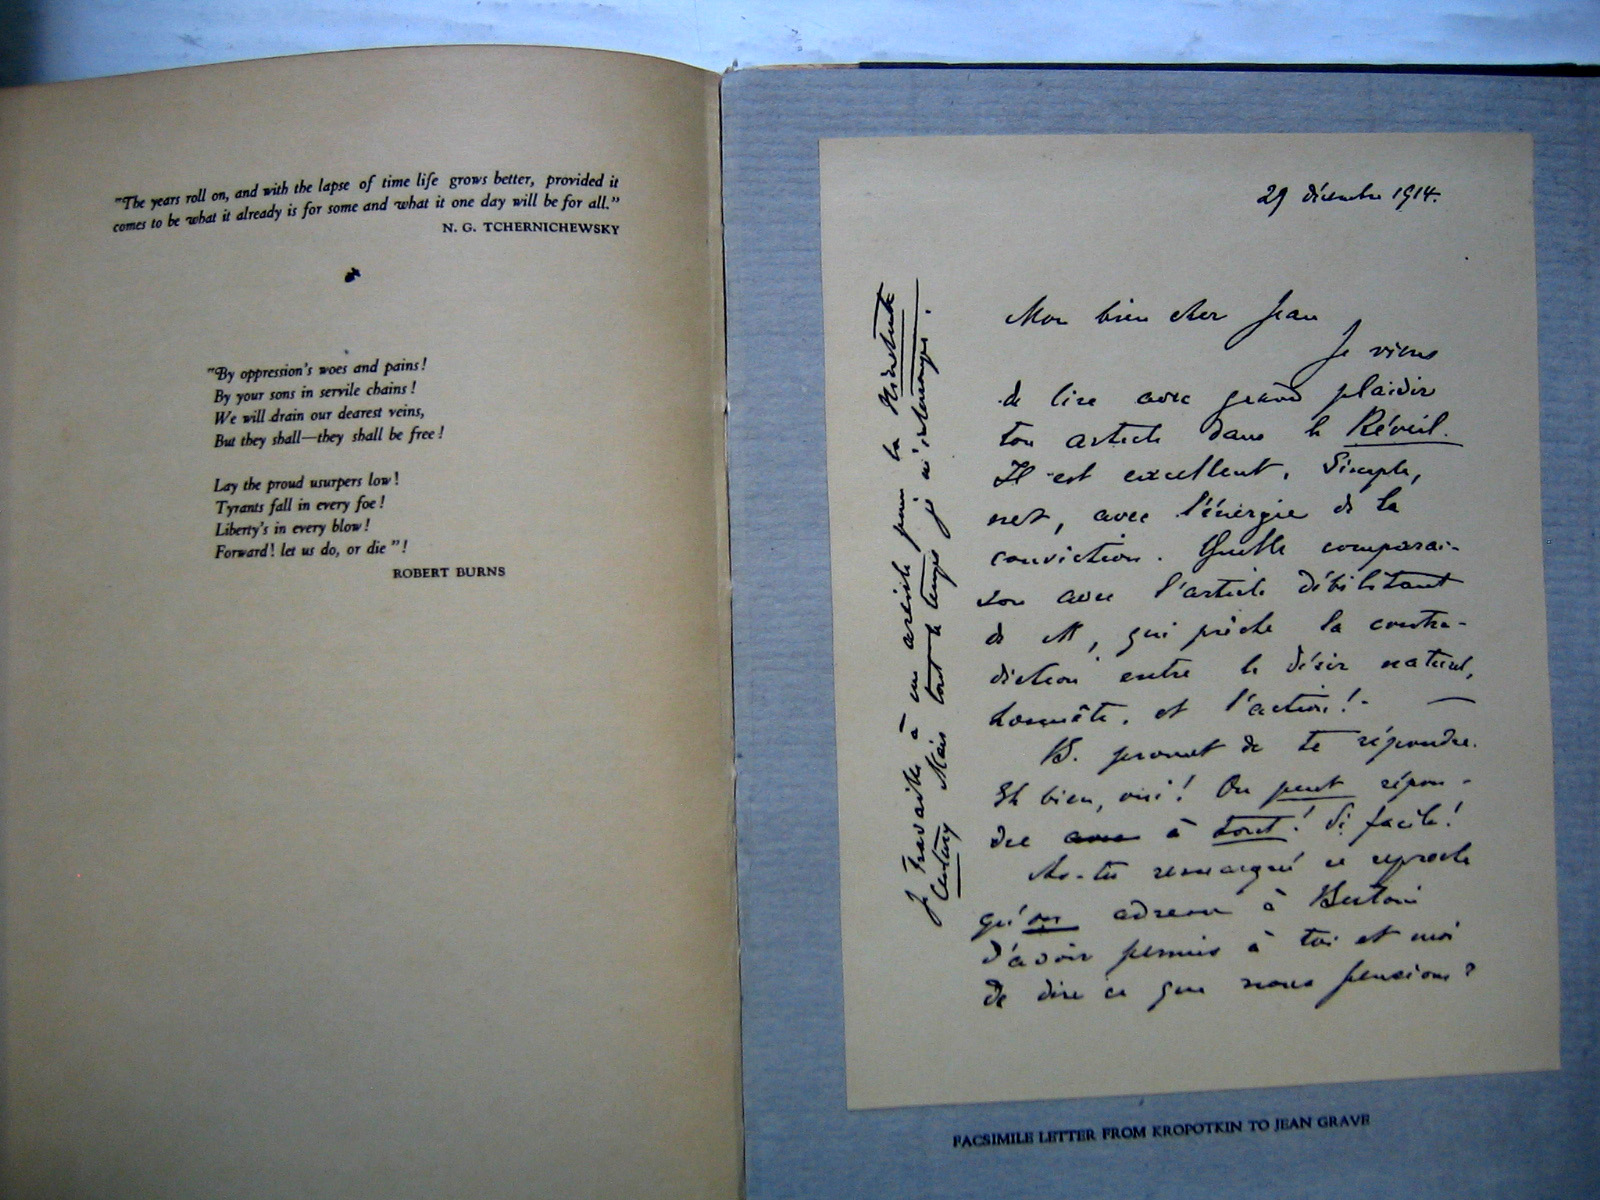 "The years roll on, and with the lapse of time life grows better, provided it
comes to be what it already is for some and what it one day will be for all."
N. G. TCHERNICHEWSKY
"By oppression's woes and pains!
By your sons in servile chains!
We will drain our dearest veins,
But they shall—they shall be free!
Lay the proud usurpers low!
Tyrants fall in every foe!
Liberty's in every blow!
Forward! let us do, or die"!
ROBERT BURNS
29 décembre 1914.
Mon bien cher Jean
Je viens
de lire avec grand plaisir
ton article dans le Réveil.
Il est excellent. Simple,
net, avec l'énergie de la
conviction. Quelle comparai-
son avec l'article débilitant
de M, qui prêche la contra-
diction entre le désir naturel,
honnête, et l'action! —
B. promet de te répondre.
Eh bien, oui! On peut répon-
dre avec à tout! Si facile!
As-tu remarqué ce reproche
qu'on adresse à Bertoni
d'avoir permis à toi et moi
de dire ce que nous pensions?
Je travaille à un article pour la Nineteenth
Century Mais tout le temps je m'interromps.
FACSIMILE LETTER FROM KROPOTKIN TO JEAN GRAVE